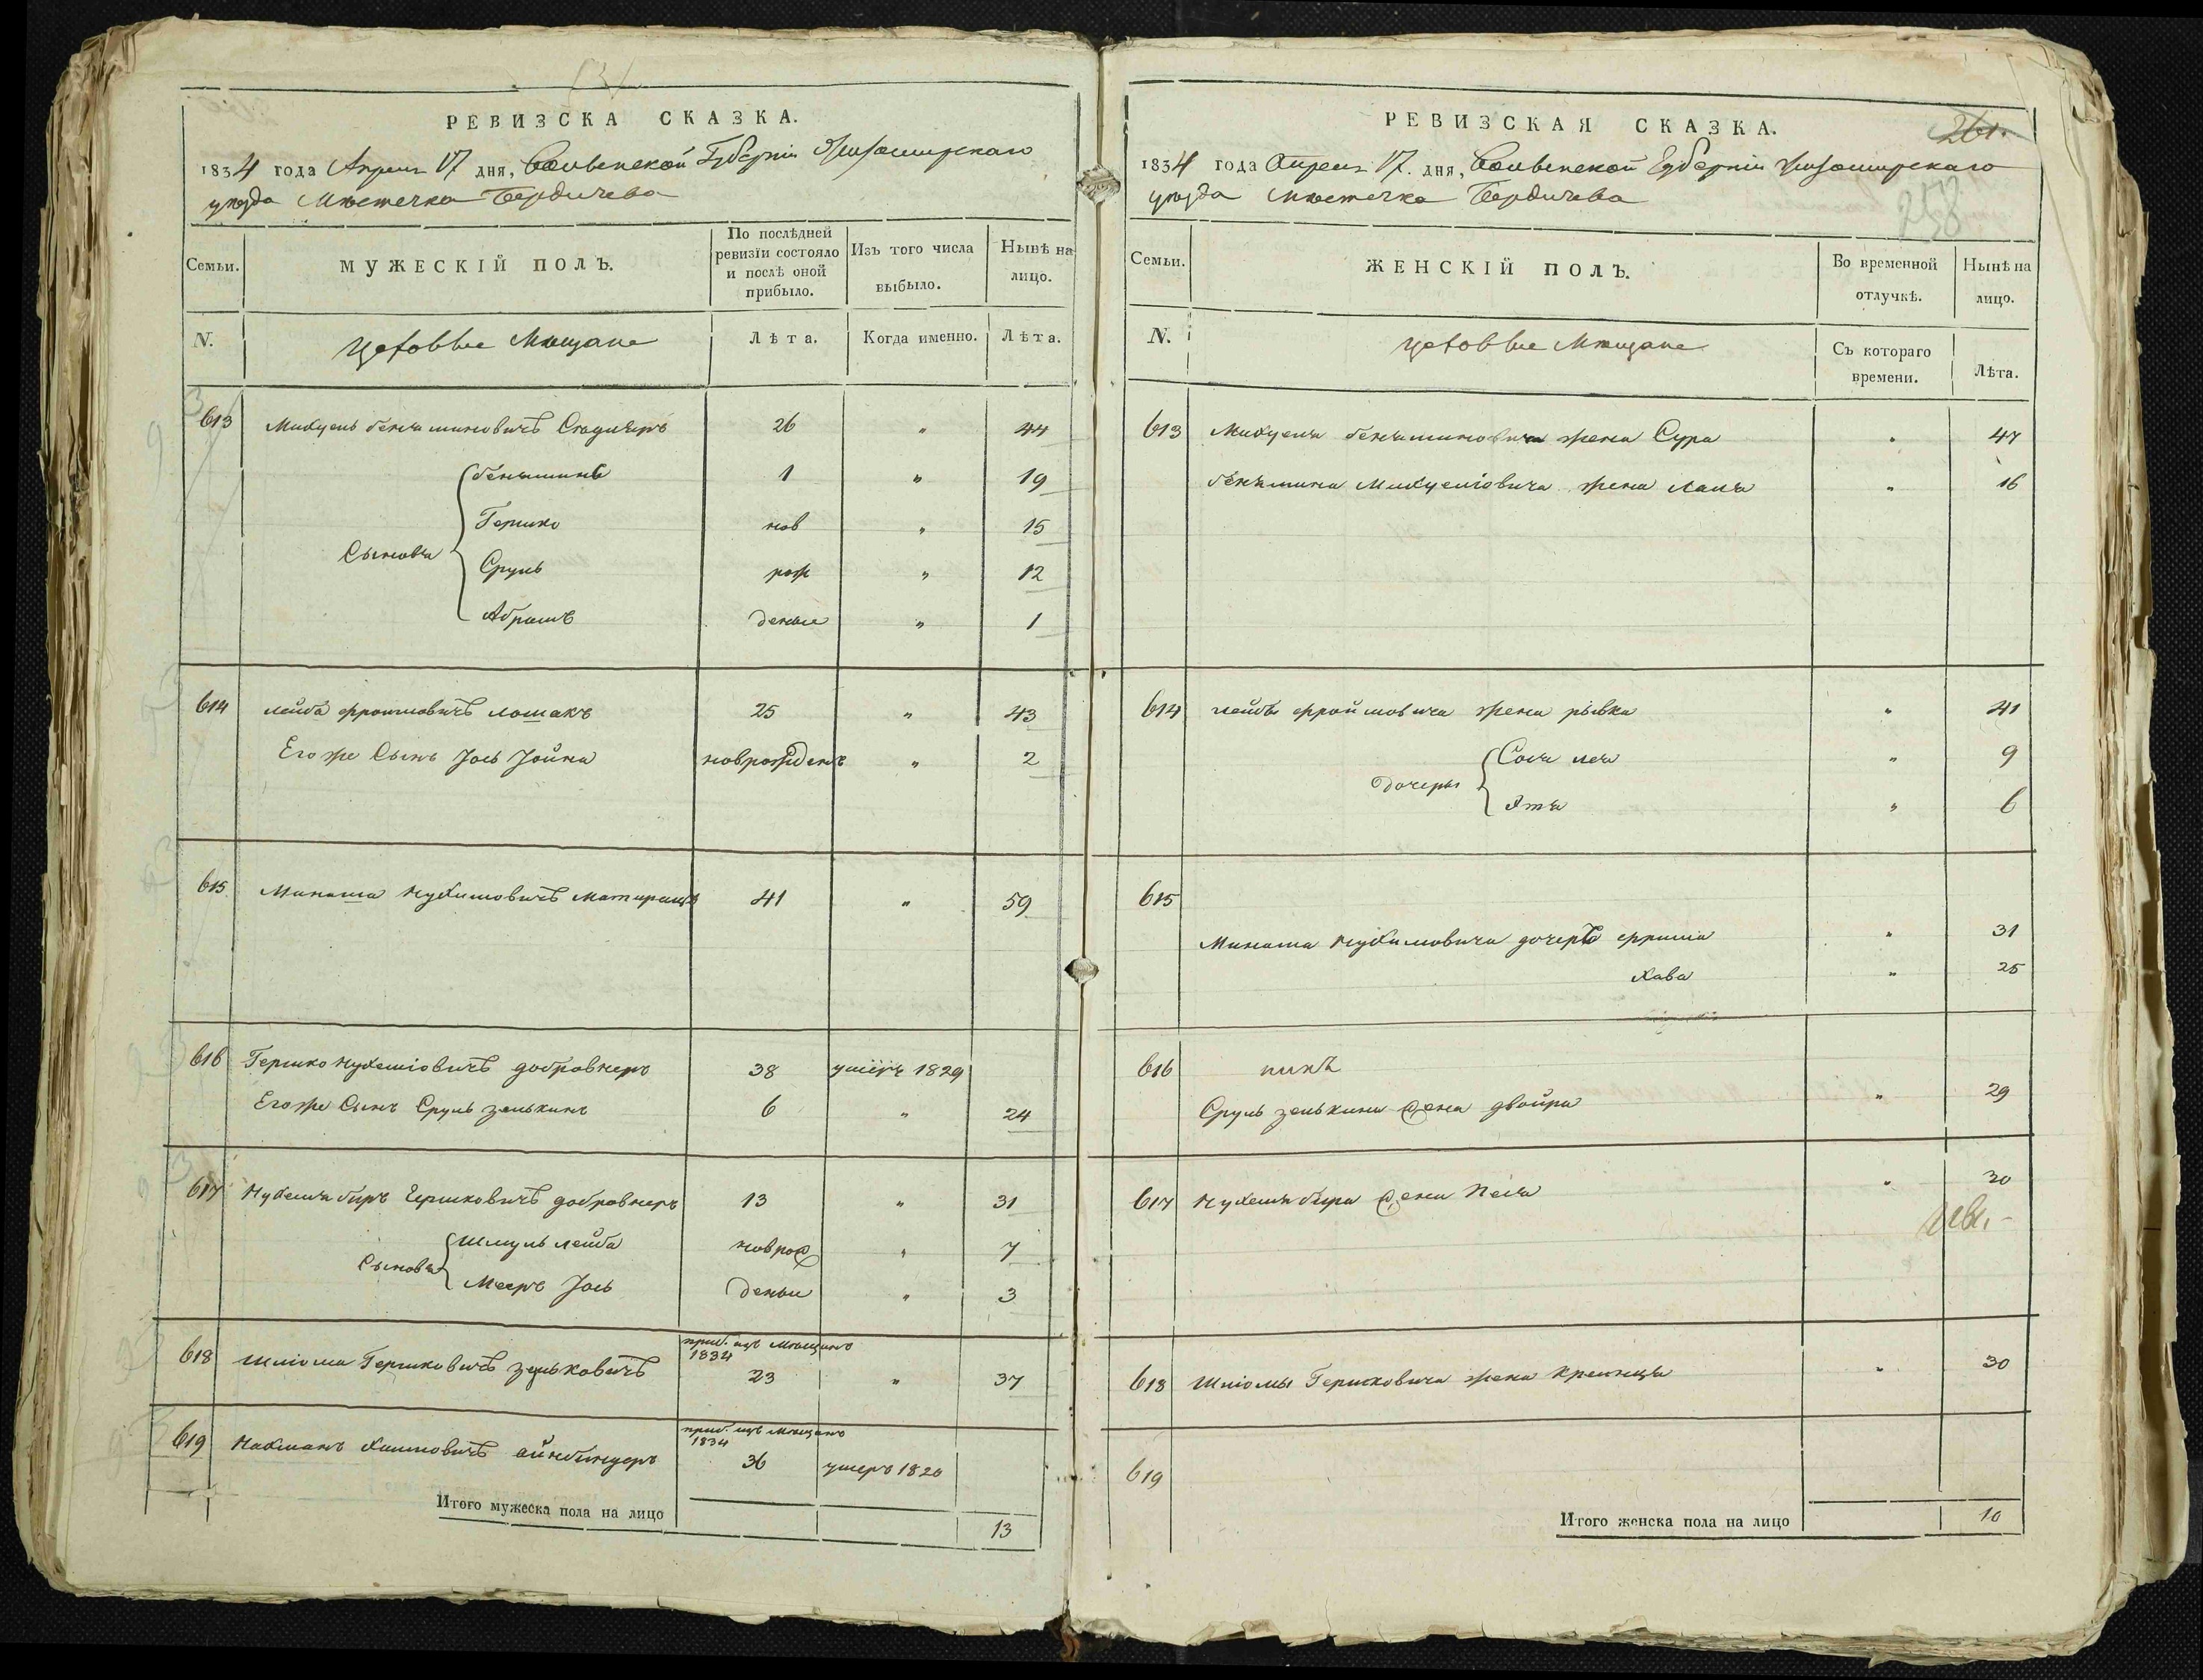 РЕВИЗСКА СКАЗКА.
1834 года Апреля 17 дня, Волынской Губерніи Житомирскаго
уѣзда Мѣстечка Бердичева
Семьи.
МУЖЕСКІЙ ПОЛЪ.
По послѣдней ревизіи состояло и послѣ оной прибыло.
Изъ того числа выбыло.
Нынѣ на лицо.
N.
Цеховые Мѣщане
Лѣта.
Когда именно.
Лѣта.
613 Михуель беньяминовичъ 26 " 44
беньяминъ 1 " 19
Гершко нов " 15
Сыновья
Сруль рож " 12
Абрамъ деные " 1
614 лейба фроимовичъ лошакъ 25 " 43
Его же Сынъ Јось Јойна новрожденъ " 2
615 Манаша Нухимовичъ 41 " 59
616 Гершко Нухеміовичъ добровнеръ 38 умеръ 1829
Его же Сынъ Сруль зелькинъ 6 " 24
617 Нухемя беръ Гершковичъ добровнеръ 13 " 31
Шмуль лейба новрож " 7
Сыновья
Мееръ Јось деные " 3
618 Шліома Гершковичъ приб. изъ Мѣщанъ 1834 23 " 37
619 Нахманъ Хаимовичъ айнбиндеръ приб. изъ Мѣщанъ 1834 36 умеръ 1820
Итого мужеска пола на лицо 13
РЕВИЗСКАЯ СКАЗКА.
261.
258
1834 года Апреля 17. дня, Волынской Губерніи Житомирскаго
уѣзда Мѣстечка Бердичева
Семьи.
ЖЕНСКІЙ ПОЛЪ.
Во временной отлучкѣ.
Нынѣ на лицо.
N.
Цеховые Мѣщане
Съ котораго времени.
Лѣта.
613 Михуеля беньяминовича жена Сура " 47
беньямина Михуеліовича жена " 16
614 лейбы фроймовича жена рывка " 41
Сося лея " 9
дочеры
Этя " 6
615
Манаша Нухимовича дочеръ " 31
Хава " 25
616
Сруль зелькина жена двойра " 29
617 Нухемя бера жена Песя " 30
618 Шліомы Гершковича жена Крейнця " 30
619
Итого женска пола на лицо 10